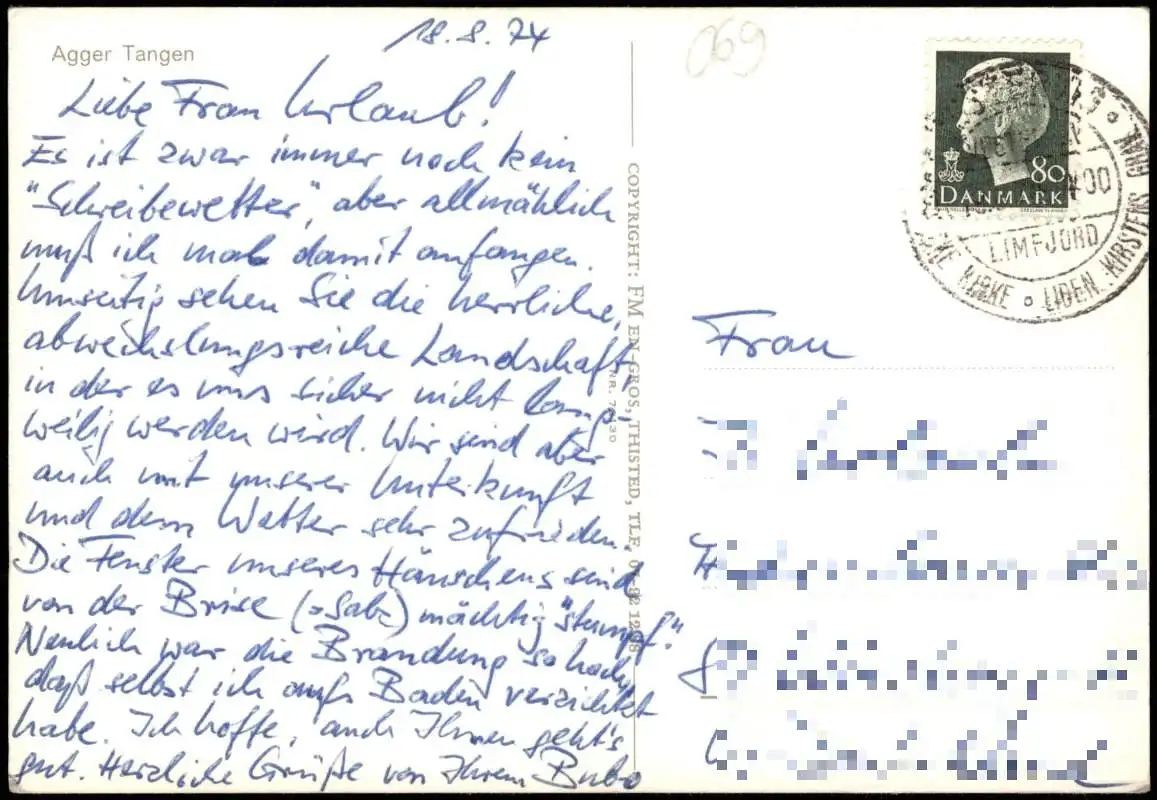 18. 8. 74
069
Agger Tangen
Liebe Frau Urlaub!
Es ist zwar immer noch kein
"Schreibewetter", aber allmählich
muß ich mal damit anfangen.
Umseitig sehen Sie die herrliche,
abwechslungsreiche Landschaft,
in der es uns sicher nicht lang-
weilig werden wird. Wir sind aber
auch mit unserer Unterkunft
und dem Wetter sehr zufrieden.
Die Fenster unseres Häuschens sind
von der Brise (→Salz) mächtig "stumpf".
Neulich war die Brandung so hoch,
daß selbst ich aufs Baden verzichtet
habe. Ich hoffe, auch Ihnen geht's
gut. Herzliche Grüße von Ihrem Bubo
COPYRIGHT: FM EN-GROS, THISTED, TLF.
NR.
80
DANMARK
LIMFJORD
KIRKE ∘ LIDEN KIRSTENS GRAV ∘
Frau